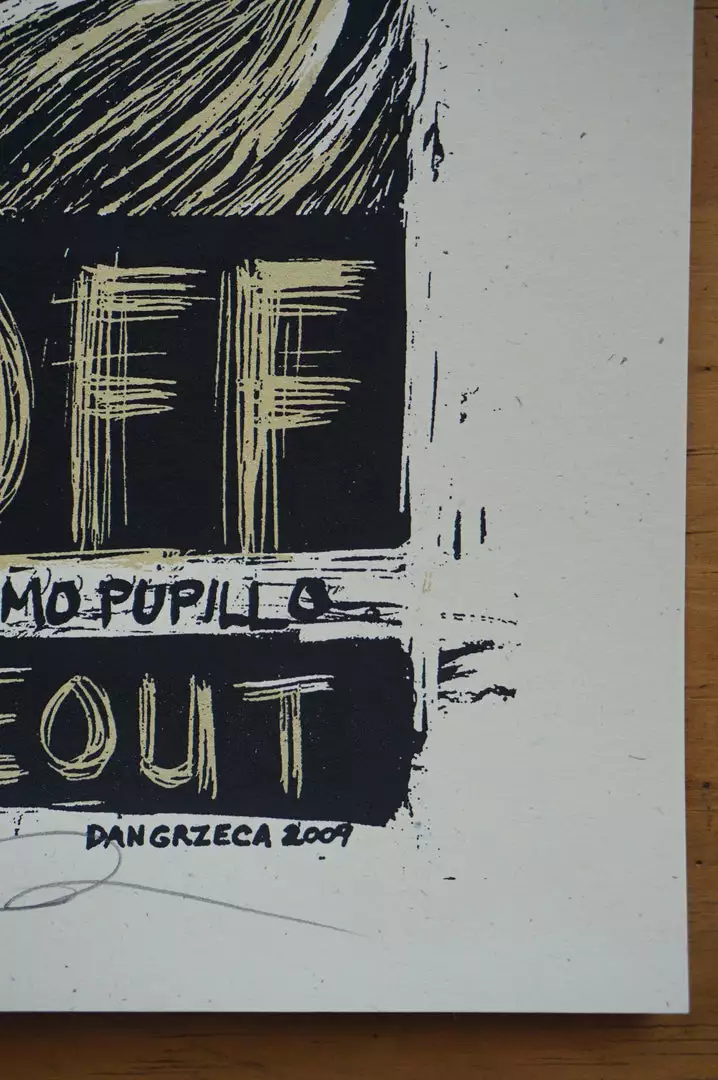 OFF
MO PUPILLO
EOUT
DAN GRZECA 2009